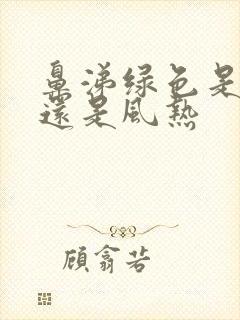 鼻涕绿色是
還是風熱
顧翕若